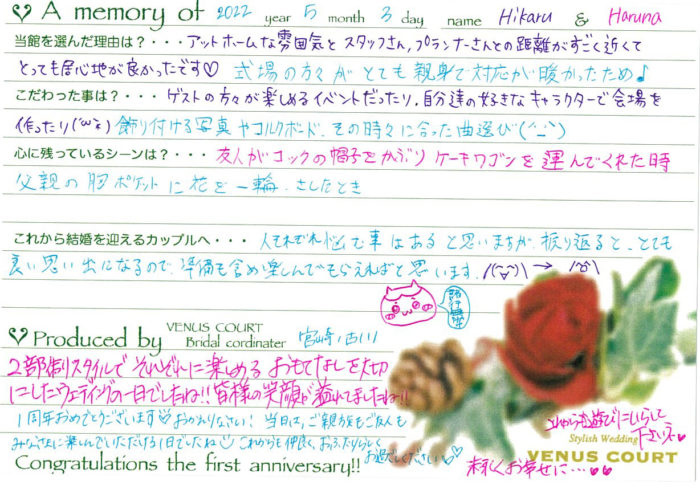 A memory of 2022 year 5 month 3 day name Hikaru & Haruna
当館を選んだ理由は?・・・アットホームな雰囲気とスタッフさん,プランナーさんとの距離がすごく近くて
とっても居心地が良かったです♡ 式場の方々がとても親身で対応が暖かったため♪
こだわった事は?・・・ゲストの方々が楽しめるイベントだったり,自分達の好きなキャラクターで会場を
作ったり 飾り付ける写真やコルクボード、その時々に合った曲選び(^_^)
心に残っているシーンは?・・・友人がコックの帽子をかぶりケーキワゴンを運んでくれた時
父親の胸ポケットに花を一輪、さしたとき
これから結婚を迎えるカップルへ・・・人それぞれ悩む事はあると思いますが、振り返ると、とても
良い思い出になるので、準備も含め楽しんでもらえればと思います。
Produced by VENUS COURT
Bridal cordinater 宮崎・古川
2部制スタイルでそれぞれに楽しめるおもてなしを大切
にしたウェディングの一日でしたね!!皆様の笑顔が溢れてましたね!!
1周年おめでとうございます♡おかえりなさい!当日は、ご親族もご友人も
みなさまに楽しんでいただける1日でしたね これからも仲良く、おふたりらしく
お過ごしくださいね♡
Congratulations the first anniversary!!
これからも遊びにいらして
下さいネ♡
Stylish Wedding
VENUS COURT
末永くお幸せに…♥♥